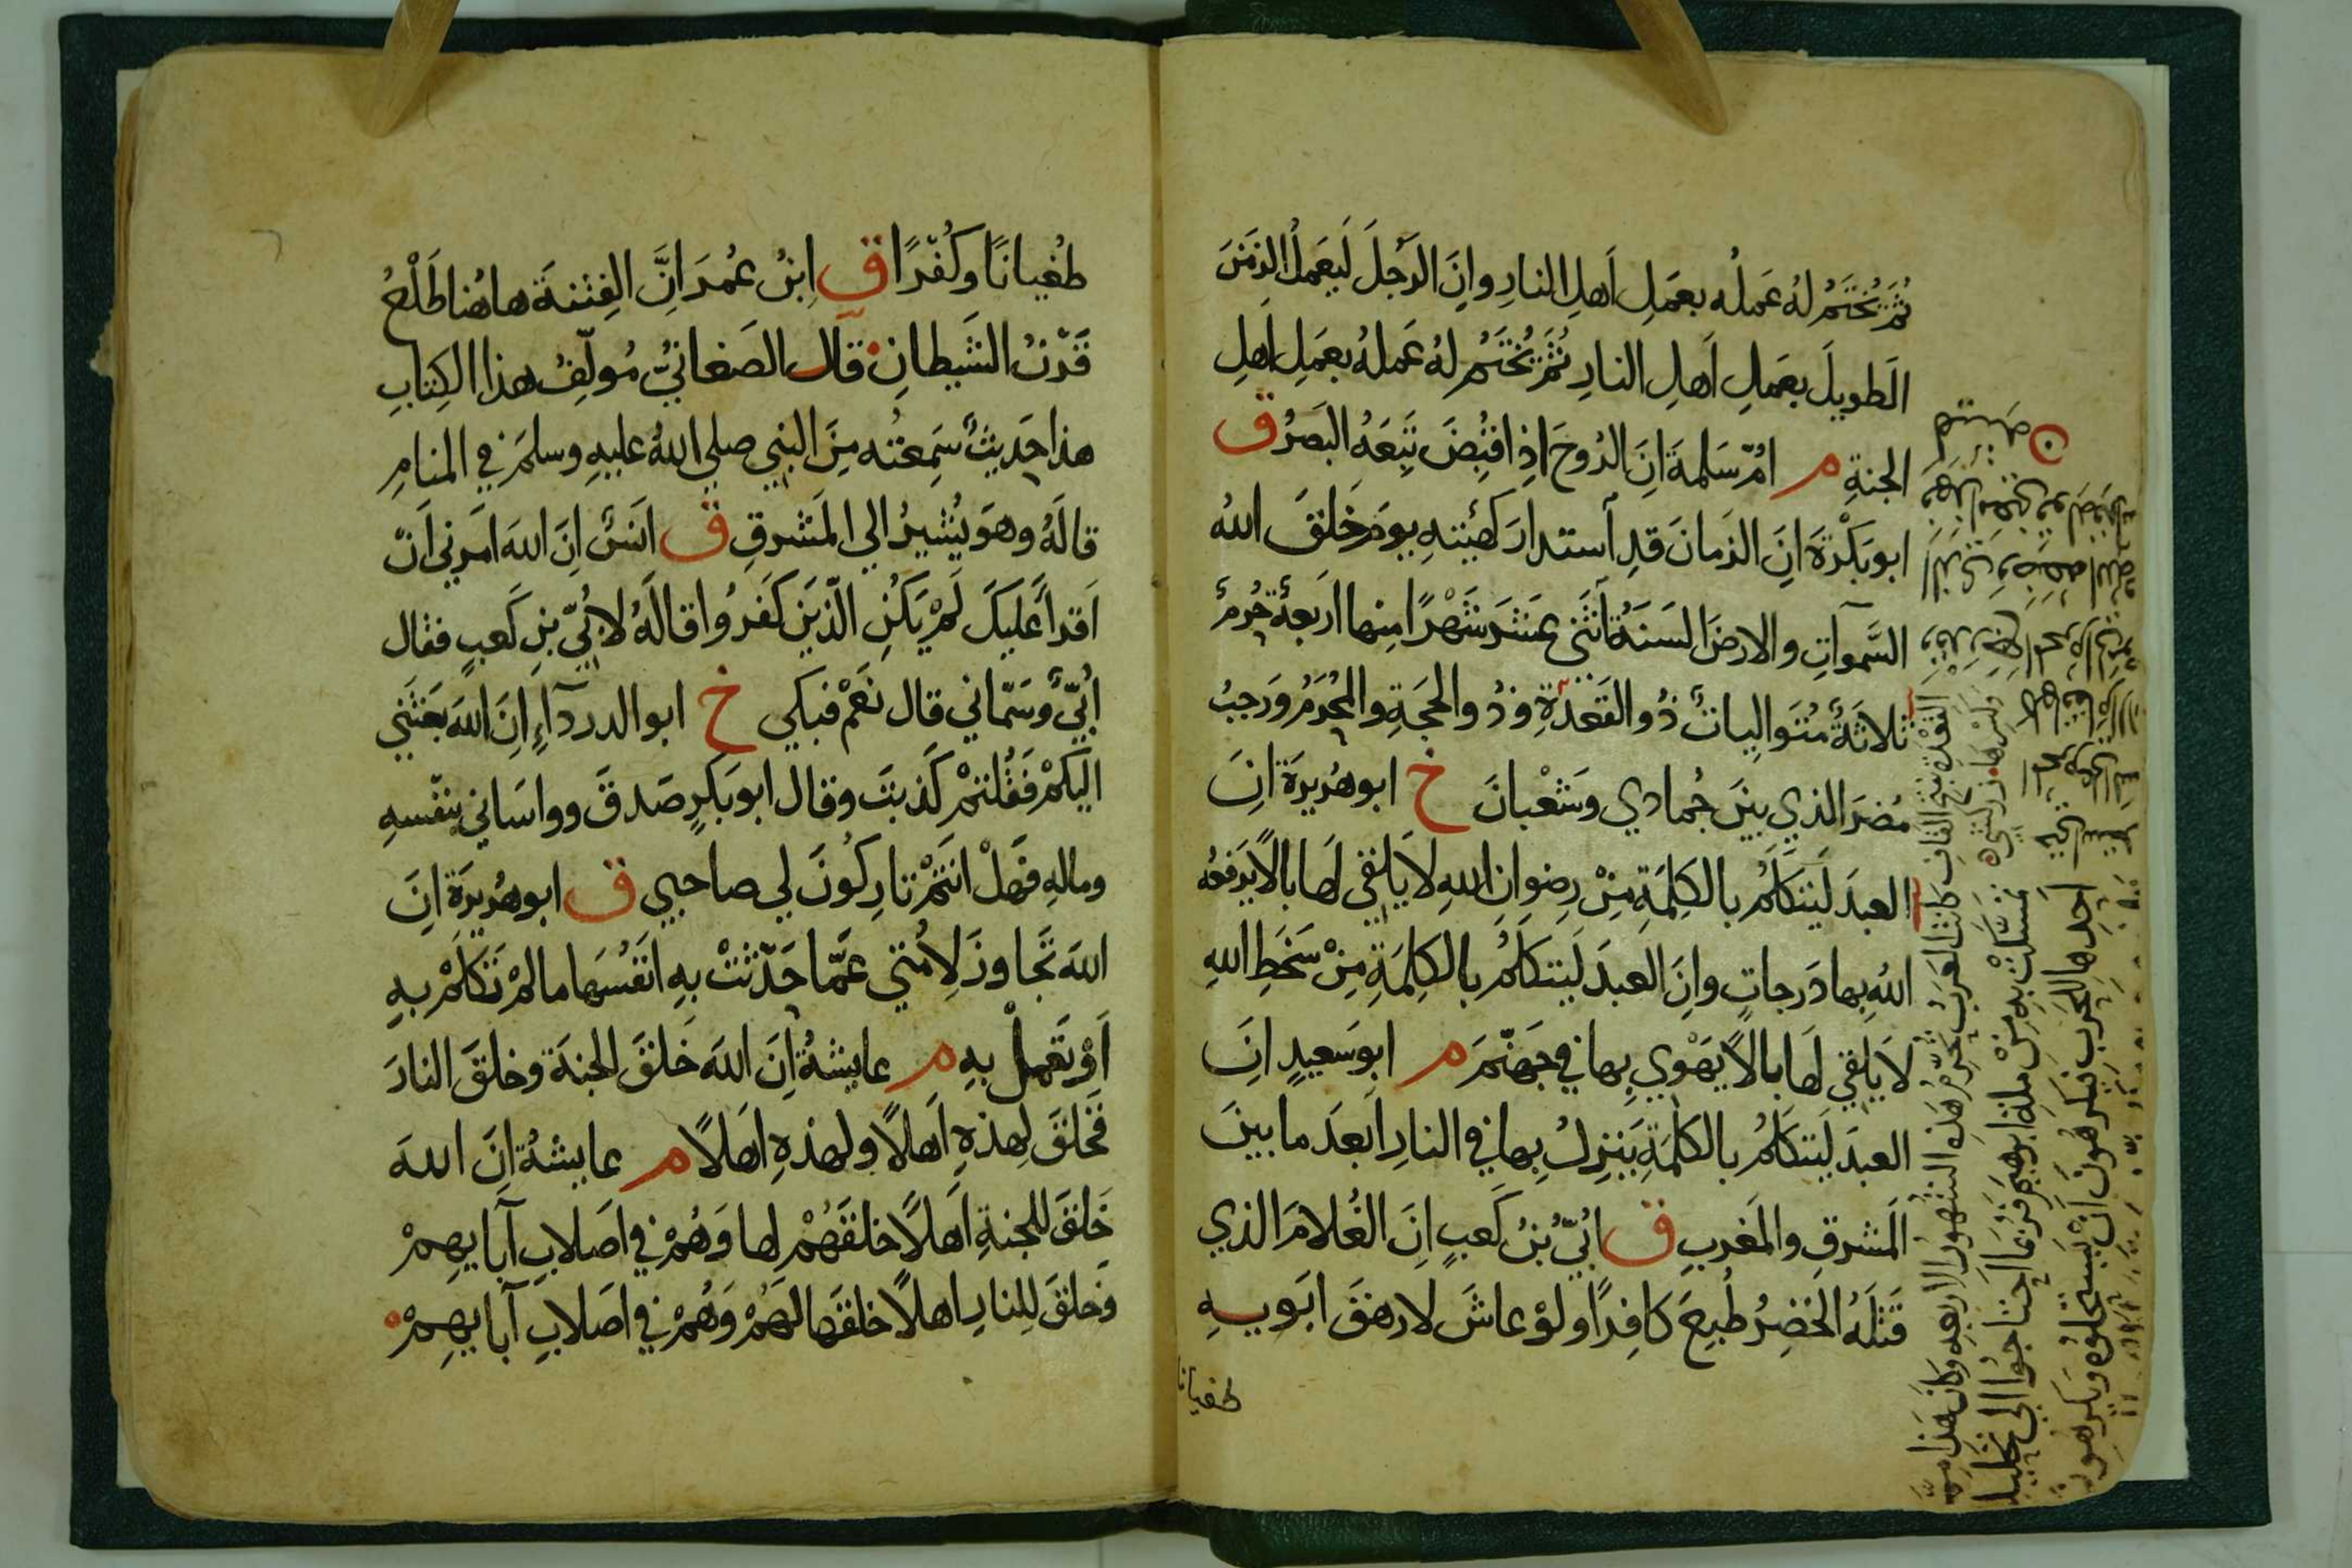 ثُمَّ يُخْتَمُ لَهُ عَمَلُه بِعَمَلِ اَهلِ النارِ وانَّ الرَّجُلَ لَيَعمَلُ الزَمَنَ
الطويلَ بِعَمَلِ اَهلِ النارِ ثُمَّ يُخْتَمُ لهُ عَملهُ بِعَمَلِ اَهلِ
الجنةِ م امُّ سَلمةَ انَّ الرُوحَ اذا قُبِضَ تَبِعَهُ البَصَرُ ق
ابو بَكْرَةَ انَّ الزمانَ قدِ آستدارَ كهَيئتهِ يومَ خَلقَ اللهُ
السَّموآتِ والارضَ السَنةُ آثنَي عشَرَ شَهْرًا منها اربَعةٌ حُرمٌ
ثلاثَةٌ مُتَوالياتٌ ذُو القَعْدةِ وذُو الحجَةِ والمُحَرَمُ ورَجبُ
مُضَرَ الذي بينَ جُمادي وشَعْبانَ خ ابوهُريرَة انَّ
العبدَ لَيَتكَلَّمُ بالكلِمَةِ مِنْ رضوانِ اللهِ لا يُلقي لَها بالًا يَرفعُه
اللهُ بها دَرجاتٍ وانَّ العبدَ لَيتكَلَّمُ بالكلِمَةِ مِنْ سَخَطِ اللهِ
لا يُلقي لَها بالًا يَهْوي بِها في جهنّمَ م ابوسَعيدٍ انَّ
العبدَ لَيَتكلَّمُ بالكلمَةِ يَنزِلُ بها في النارِ اَبعدَ ما بينَ
المَشرقِ والمَغربِ ق اُبيُّ بنُ كَعبٍ اِنَّ الغُلامَ الذي
قَتلَهُ الخَضِرُ طُبِعَ كافِرًا ولوْ عاشَ لارهقَ ابَوَيهِ
طغيانا
القعْدة بفتح القاف وكسرها زركشي
كانت العرب تحرم هذه الشهور الاربعه وكان هذا مما
تمسكت به من ملة ابرهيم فربما احتاجوا الي تحليل
احدها للحرب فيكرهون ان يستحلوه ويكرهون
طُغيانًا وكُفرًا ق اِبنُ عُمرَ اِنَّ الفِتنةَ هاهُنا طَلْعُ
قَرْنُ الشَيطانِ قال الصَغانيُّ مُولِّفُ هذا الكِتابِ
هذا حَديثٌ سَمِعْتُه مِنَ النبي صلي اللهُ عليهِ وسلمَ في المنامِ
قالَهُ وهوَ يُشيرُ الي المَشرقِ ق انَسٌ اِنَّ اللهَ امَرني اَنْ
اَقرأَ عليكَ لَمْ يَكُنِ الّذينَ كَفَرُوا قالَهُ لاُبيِّ بنِ كَعبٍ فقال
اُبيٌّ وسَمّاني قال نَعَمْ فبكي خ ابو الدردآءِ اِنَّ اللهَ بعَثَني
اليكُمْ فَقُلتُمْ كَذبتَ وقال ابوبَكرٍ صَدقَ وواسَاني بنفسهِ
ومالهِ فهَلْ انتُمْ تارِكُونَ لي صاحبي ق ابوهُريرَة انَّ
اللهَ تَجاوزَ لِاُمّتي عَمّا حَدّثتْ بهِ انفُسَها مالمْ تتكلّمْ بهِ
اَوْ تَعملْ بهِ م عايشةُ اِنَّ اللهَ خَلقَ الجنةَ وخلقَ النارَ
فَخلقَ لِهذهِ اَهلًا ولهذهِ اَهلًا م عايشةُ اِنَّ اللهَ
خَلقَ للجنةِ اَهلًا خلقَهُمْ لها وَهُمْ في اصَلابِ آبايهِمْ
وخلقَ لِلنارِ اهلًا خلقها لهُمْ وَهُمْ في اصَلابِ آبايهِمْ